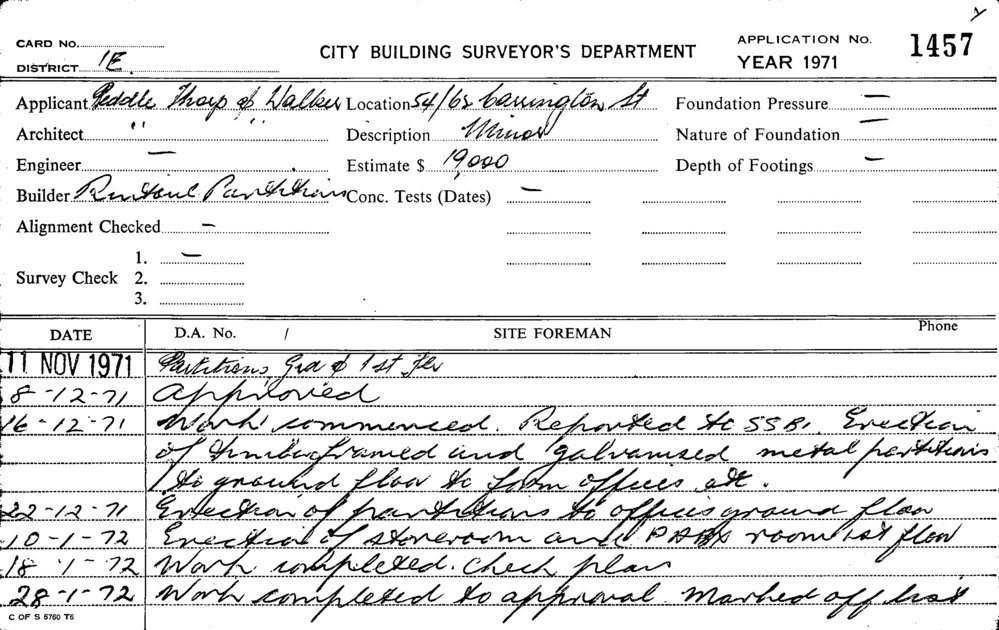 CARD No.
DISTRICT 1E
CITY BUILDING SURVEYOR'S DEPARTMENT
APPLICATION No. 1457
YEAR 1971
Applicant Peddle Thorp & Walker Location 54/62 Carrington St Foundation Pressure —
Architect " " Description Minor Nature of Foundation —
Engineer — Estimate $ 19,000 Depth of Footings —
Builder Rintoul Partitions Conc. Tests (Dates) —
Alignment Checked —
Survey Check 1. —
2.
3.
DATE D.A. No. / SITE FOREMAN Phone
11 NOV 1971 Partitions, Grd & 1st Flr
8-12-71 Approved
16-12-71 Work commenced. Reported to SSBI. Erection
of timber framed and galvanised metal partitions
to ground floor to form offices etc.
22-12-71 Erection of partitions to offices ground floor
10-1-72 Erection of storeroom and PABX room 1st floor
18-1-72 Work completed. check plan
28-1-72 Work completed to approval. Marked off list
C OF S 6760 T6